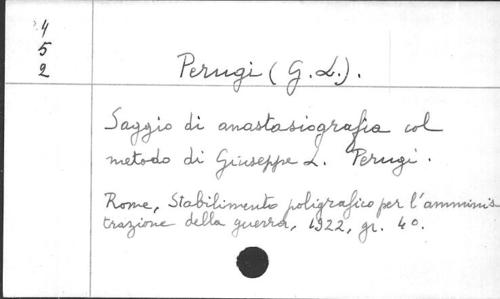 4
5
2
Perugi (G.L.).
Saggio di anastasiografia col
metodo di Giuseppe L. Perugi.
Rome, Stabilimento poligrafico per l'amminis
trazione della guerra, 1922, gr. 4o.